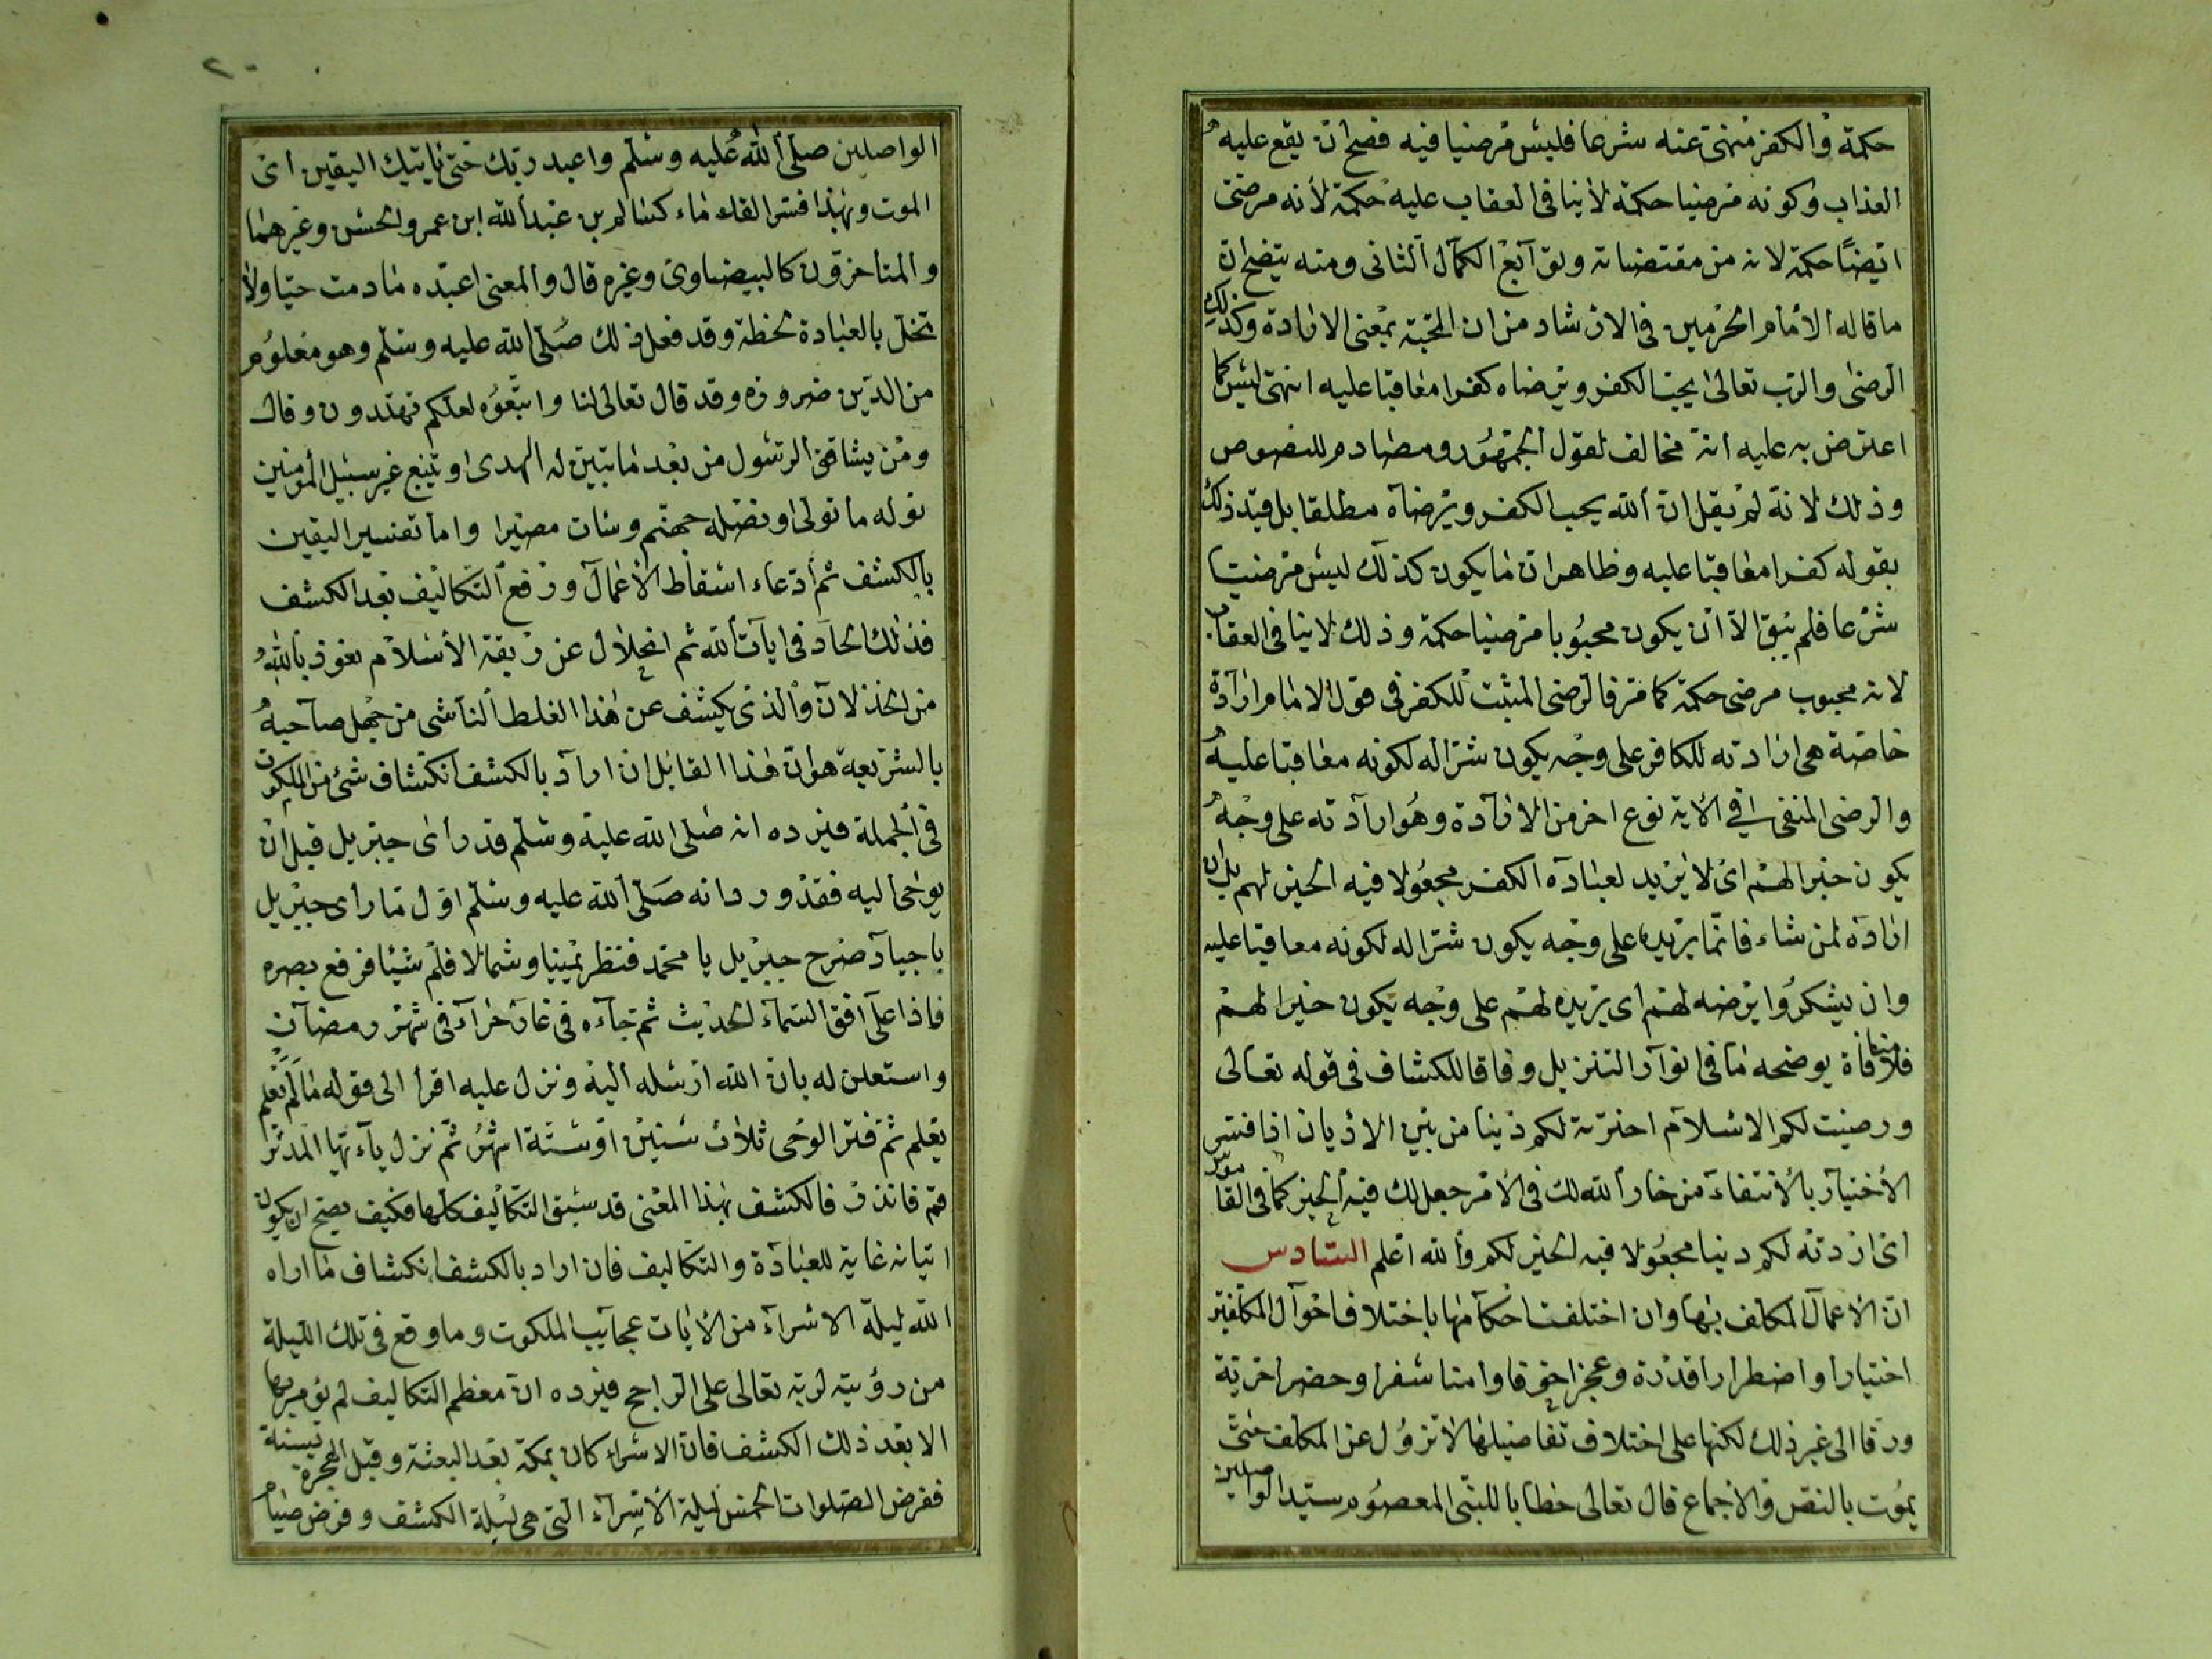 حكمة والكفر منهى عنه شرعا فليس مرضيا فيه فصح ان يقع عليه
العذاب وكونه مرضيا حكمة لا ينافى العقاب عليه حكمة لأنه مرضى
ايضًا حكمة لانه من مقتضيات وتوابع الكمال الثانى ومنه يتضح ان
ما قاله الامام الحرمين فى الارشاد من ان المحبة بمعنى الارادة وكذلك
الرضى والرب تعالى يحب الكفر ويرضاه كفرا معاقبا عليه انتهى ليس كما
اعترض به عليه انه مخالف لقول الجمهور ومصادم للنصوص
وذلك لانه لم يقل ان الله يحب الكفر ويرضاه مطلقا بل قيد ذلك
بقوله كفرا معاقبا عليه وظاهر ان ما يكون كذلك ليس مرضيا
شرعا فلم يبق الا ان يكون محبوبا مرضيا حكمة وذلك لا ينافى العقاب
لانه محبوب مرضى حكمة كما مر فالرضى المثبت للكفر فى قول الامام ارادة
خاصة هى ارادته للكافر على وجه يكون شرا له لكونه معاقبا عليه
والرضى المنفى فى الآية نوع اخر من الارادة وهو ارادته على وجه
يكون خيرا لهم اى لا يريد لعباده الكفر مجعولا فيه الخير لهم بل ان
اراده لمن شاء فانما يريده على وجه يكون شرا له لكونه معاقبا عليه
وان يشكروا يرضه لهم اى يريده لهم على وجه يكون خيرا لهم
فلا منافاة يوضحه ما فى انوار التنزيل وفاقا للكشاف فى قوله تعالى
ورضيت لكم الاسلام اخترته لكم دينا من بين الاديان اذا فسر
الاختيار بالانتقاء من خار الله لك فى الامر جعل لك فيه الخير كما فى القاموس
اى اردته لكم دينا مجعولا فيه الخير لكم والله اعلم السادس
ان الاعمال المكلف بها وان اختلفت احكامها باختلاف احوال المكلفين
اختيارا واضطرارا قدرة وعجزا خوفا وامنا سفرا وحضرا حرية
ورقا الى غير ذلك لكنها على اختلاف تفاصيلها لا تزول عن المكلف حتى
يموت بالنص والاجماع قال تعالى خطابا للنبى المعصوم سيد الواصلين
الواصلين صلى الله عليه وسلم واعبد ربك حتى ياتيك اليقين اى
الموت وبهذا فسر القدماء كسالم بن عبد الله ابن عمر والحسن وغيرهما
والمتأخرون كالبيضاوى وغيره قال والمعنى اعبده ما دمت حيا ولا
تخل بالعبادة لحظة وقد فعل ذلك صلى الله عليه وسلم وهو معلوم
من الدين ضرورة وقد قال تعالى لنا واتبعوه لعلكم تهتدون وقال
ومن يشاقق الرسول من بعد ما تبين له الهدى ويتبع غير سبيل المؤمنين
نوله ما تولى ونصله جهنم وساءت مصيرا واما تفسير اليقين
بالكشف ثم ادعاء اسقاط الأعمال ورفع التكاليف بعد الكشف
فذلك الحاد فى ايات الله ثم انحلال عن ربقة الاسلام نعوذ بالله
من الخذلان والذى يكشف عن هذا الغلط الناشى من جهل صاحبه
بالشريعة هو ان هذا القائل ان اراد بالكشف انكشاف شئ من الملكوت
فى الجملة فيرده انه صلى الله عليه وسلم قد رأى جبريل قبل ان
يوحى اليه فقد ورد انه صلى الله عليه وسلم اول ما رأى جبريل
باجياد صرح جبريل يا محمد فنظر يمينا وشمالا فلم شيئا فرفع بصره
فاذا على افق السماء الحديث ثم جاءه فى غار حراء فى شهر رمضان
واستعلن له بان الله ارسله اليه ونزل عليه اقرأ الى قوله ما لم يعلم
يعلم ثم فتر الوحى ثلاث سنين او ستة اشهر ثم نزل ياءيها المدثر
قم فانذر فالكشف بهذا المعنى قد سبق التكاليف كلها فكيف يصح ان يكون
اتيانه غاية للعبادة والتكاليف فان اراد بالكشف انكشاف ما اراه
الله ليلة الاسراء من الايات عجائب الملكوت وما وقع فى تلك الليلة
من رؤيته لربه تعالى على الراجح فيرده ان معظم التكاليف لم يؤمر بها
الا بعد ذلك الكشف فان الاسراء كان بمكة بعد البعثة وقبل الهجرة بسنة
ففرض الصلوات الخمس ليلة الاسراء التى هى ليلة الكشف وفرض صيام